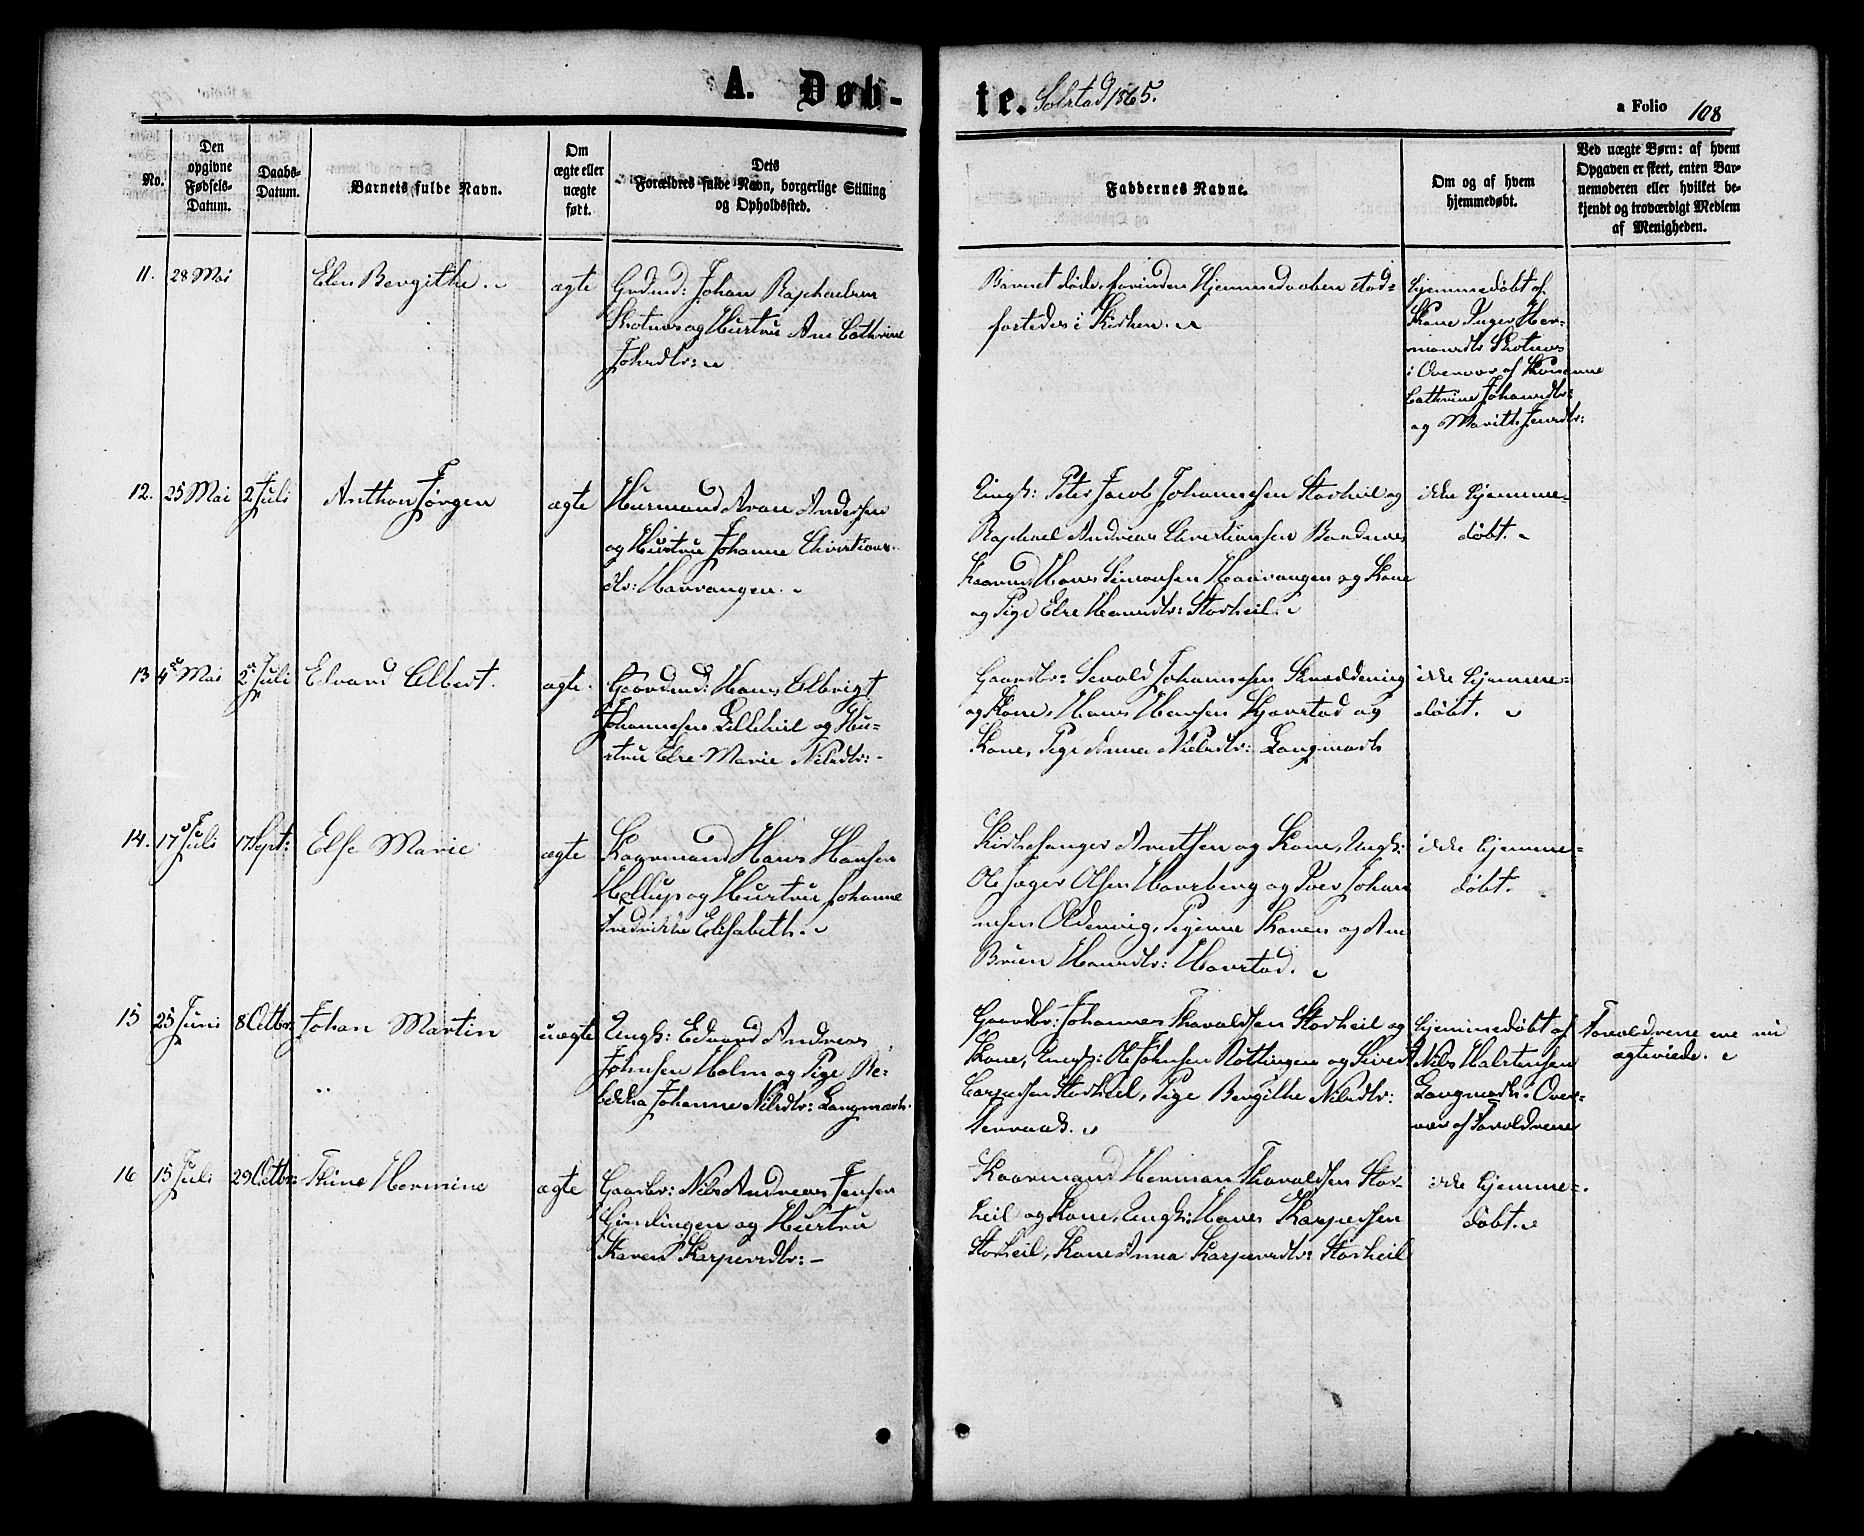 A. Døb-
te. Solstad 1865.
a Folio 108
No.
Den
opgivne
Fødsels-
Datum.
Daabs-
Datum.
Barnets fulde Navn.
Om
ægte eller
uægte
født.
Dets
Forældres fulde Navn, borgerlige Stilling
og Opholdssted.
Faddernes Navne.
Om og af hvem
hjemmedøbt.
Ved uægte Børn: af hvem
Opgaven er skeet, enten Bar-
nemoderen eller hvilket be-
kjendt og troværdigt Medlem
af Menigheden.
11.
28 Mai
Elen Bergithe.
ægte
Grdmd: Johan Raphaelsen
Skotnes og Hustru Ane Cathrine
Johsdtr:
Barnet døde, forinden Hjemmedaaben stad-
fæstedes i Kirken.
hjemmedøbt af
Kone Inger Her-
mansdtr Skotnes
i Overvær af Konerne
Cathrine Johansdtr:
og Marith Jensdtr:
12.
25 Mai
2 Juli
Anthon Jørgen
ægte
Huusmand Aron Andersen
og Hustru Johanne Christians-
dtr: Haavangen.
Ungk: Peter Jacob Johannesen Storheil og
Raphael Andreas Christiansen
Kaarmd Hans Simonsen Haavangen og Kone
og Pige Else Hansdtr: Storheil.
ikke hjemme-
døbt.
13
4de Mai
2den Juli
Edvard Albert.
ægte.
Gaardmd: Hans Albrigt
Johannesen Lilleheil og Hu-
stru Else Marie Nilsdtr:
Gaardbr: Sevald Johannesen
og Kone, Hans Hansen Kjørstad og
Kone, Pige Anna Nielsdtr: Langmark
ikke hjemme-
døbt.
14.
17de Juli
17 Sept:
Else Marie
ægte
Kaarmand Hans Hansen
Hellup og Hustru Johanne
Fredrikke Elisabeth.
Kirkesanger Arntsen og Kone, Ungk:
Ole Jæger Olsen Havsberg og Peer Johan-
nesen Oldervig, Pigerne Karen og An
Hansdtr: Havstad.
ikke hjemme-
døbt.
15
25 Juni
8 Octbr:
Johan Martin
uægte
Ungk: Edvard Andreas
Johnsen Holm og Pige Re-
bekka Johanne Nilsdtr: Langmark.
Gaardbr: Johannes Thoraldsen Storheil og
Kone, Ungk: Ole Johnsen Røttingen og Sivert
Caspersen Storheil, Pige Bergithe Nilsdtr:
hjemmedøbt af
Nils Halstensen
Langmark i Over-
vær af Forældrene
Forældrene ere nu
ægteviede.
16
15 Juli
29 Octbr:
Stine Hermine
ægte
Gaardbr: Nils Andreas Jensen
Gimlingen og Hustru
Karen Kaspersdtr:
Kaarmand Herman Thoraldsen Stor-
heil og Kone, Ungk: Hans Kaspersen
Storheil, Kone Anna Kaspersdtr: Storheil
ikke hjemme-
døbt.